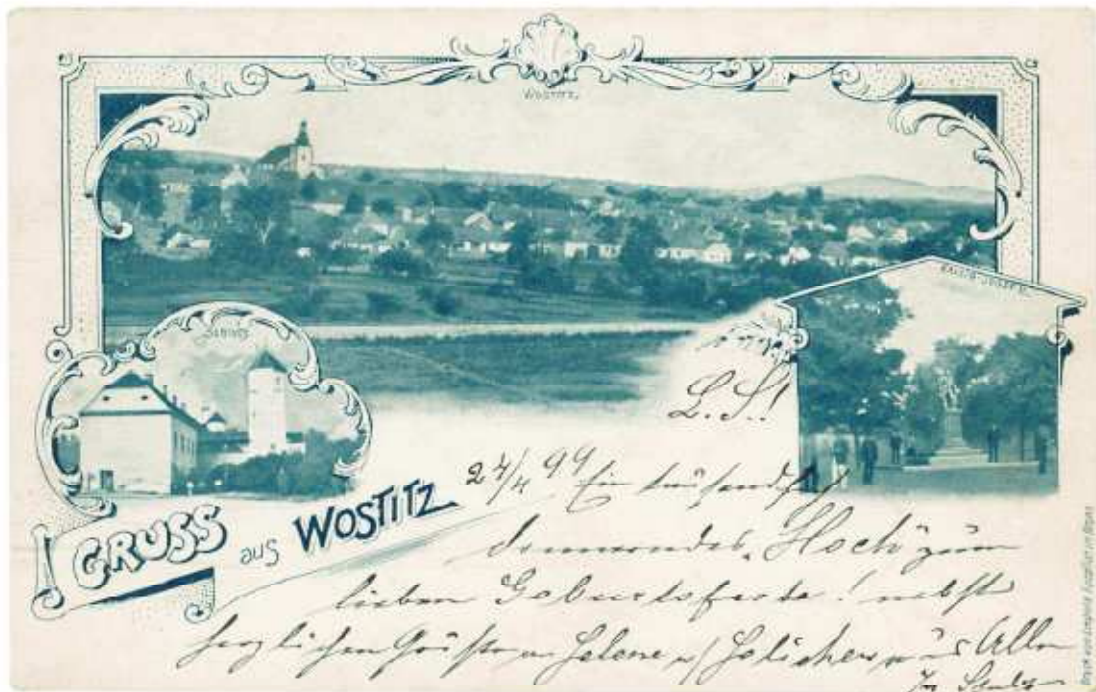 WOSTITZ.
SCHLOSS
KAISER-JOSEF
GRUSS aus WOSTITZ
L. S.!
24/4 99 Ein tausendfach
donnerndes „Hoch“ zum
lieben Geburtsfeste! nebst
herzlichen Grüßen an Helene
Allen